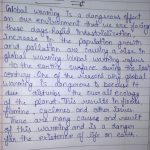 Global warming is a dangerous effect
on our environment that we are facing
these days. Rapid industrialization,
increase in the population growth
and pollution are causing a rise in
global warming. Global warming refers
to the earth's surface during the last
century. One of the reasons why global
warming is dangerous is because it
the overall ecology
of the planet. This results in floods,
famine, cyclones and other issues.
There are many causes and results
of this warming and is a danger
for the existence of life on earth.